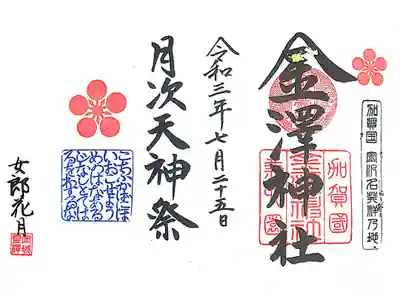 加賀国 金沢名発祥乃地
金澤神社
加賀國
令和三年七月二十五日
月次天神祭
こちふかばにほ
いおこせよう
めのはなある
じなしとては
るをわするな
女郎花月